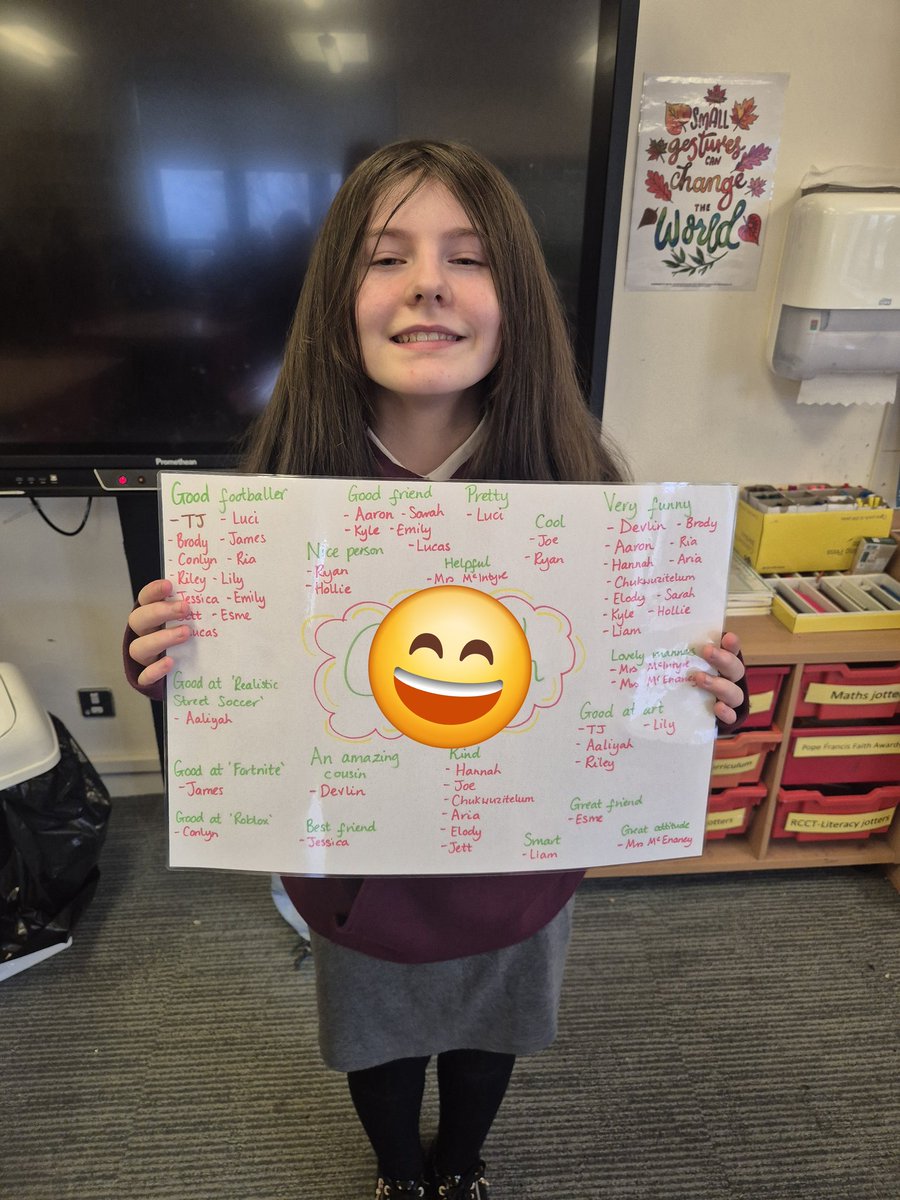 SMALL
gestures
CAN
change
THE
World
Promethean
Good footballer
- TJ - Luci
- Brody - James
- Conlyn - Ria
- Riley - Lily
- Jessica - Emily
- Jett - Esme
Lucas
Good friend
- Aaron - Sarah
- Kyle - Emily
- Lucas
Pretty
- Luci
Nice person
- Ryan
- Hollie
Helpful
- Mrs McIntyre
Cool
- Joe
- Ryan
Very funny
- Devlin - Brody
- Aaron - Ria
- Hannah - Aria
- Chukwuzitelum
- Elody - Sarah
- Kyle - Hollie
- Liam
Lovely manners
- Mrs McIntyre
- Mrs McEnaney
Good at 'Realistic
Street Soccer'
- Aaliyah
Good at art
- TJ - Lily
- Aaliyah
- Riley
Good at 'Fortnite'
- James
An amazing
cousin
- Devlin
Kind
- Hannah
- Joe
- Chukwuzitelum
- Aria
- Elody
- Jett
Good at 'Roblox'
- Conlyn
Best friend
- Jessica
Smart
- Liam
Great friend
- Esme
Great attitude
- Mrs McEnaney
Maths jotte
Pope Francis Faith Award
rriculum
RCCT-Literacy jotters
otters